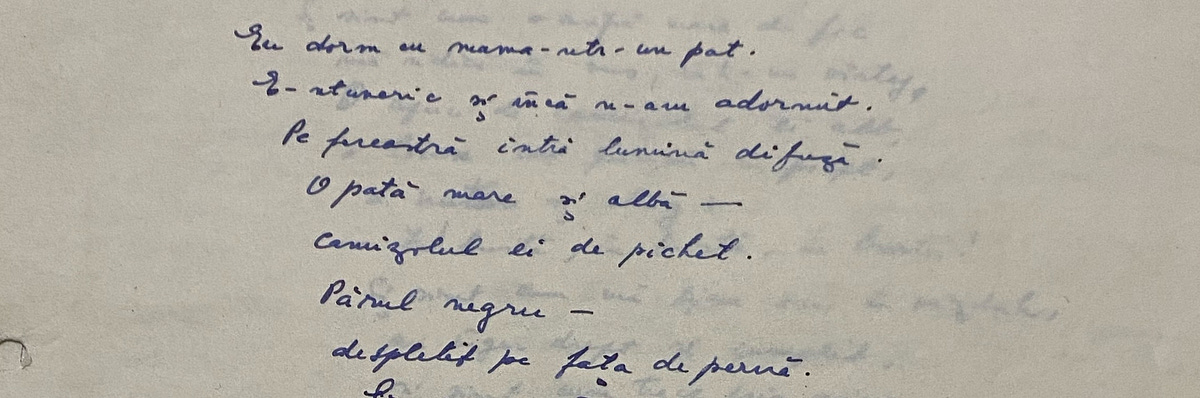 Eu dorm cu mama-ntr-un pat.
E-ntuneric și încă n-am adormit.
Pe fereastră intră lumină difuză.
O pată mare și albă —
camizolul ei de pichet.
Părul negru —
despletit pe fața de pernă.